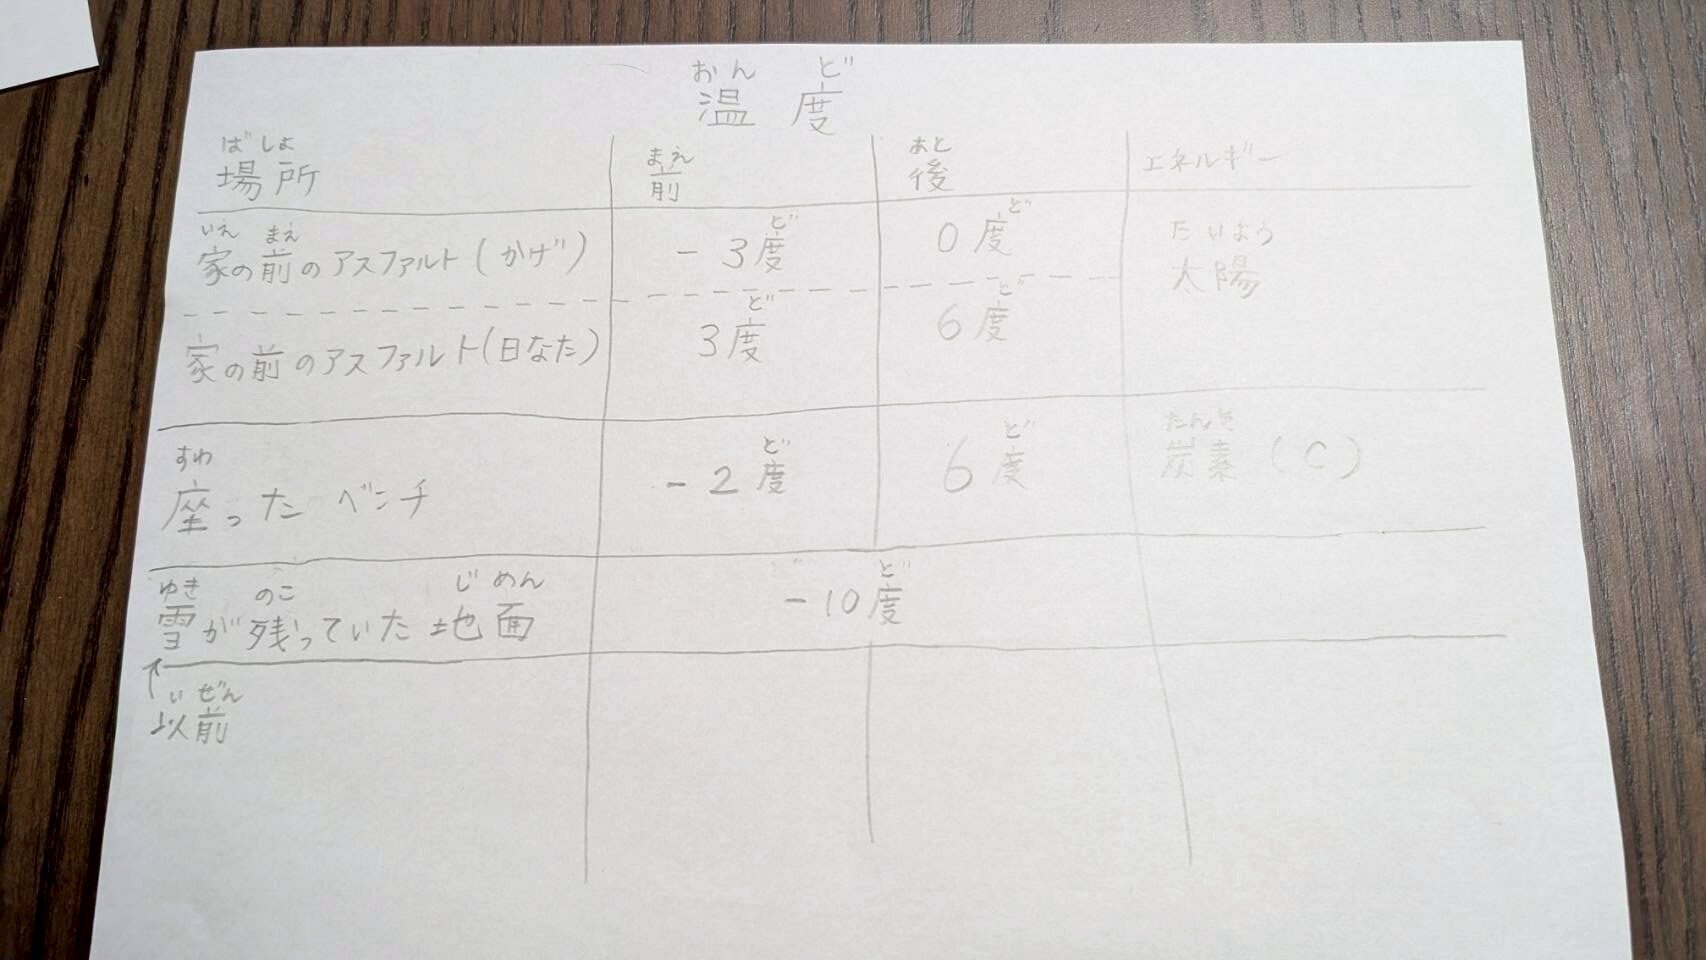 おん ど
温度
ばしょ まえ あと
場所 前 後 エネルギー
いえ まえ ど ど たいよう
家の前のアスファルト(かげ) -3度 0度 太陽
ど ど
家の前のアスファルト(日なた) 3度 6度
すわ ど ど たんそ
座ったベンチ -2度 6度 炭素(C)
ゆき のこ じめん ど
雪が残っていた地面 -10度
↑
いぜん
以前